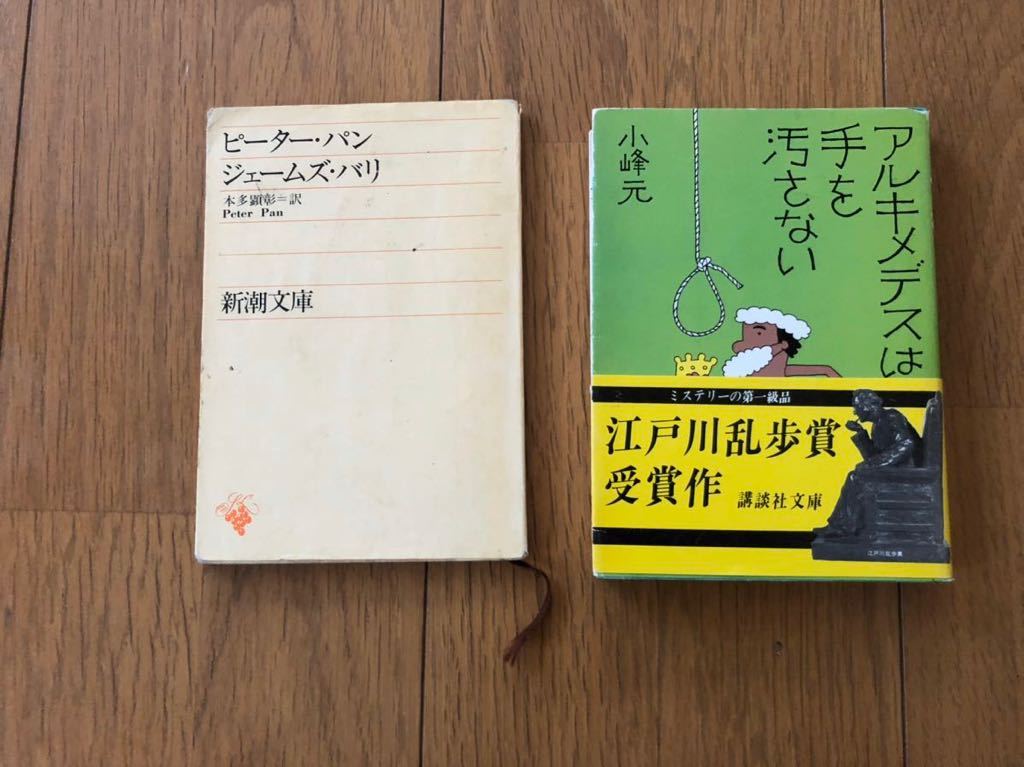 ピーター・パン
ジェームズ・バリ
本多顕彰=訳
Peter Pan
新潮文庫
アルキメデスは
手を
汚さない
小峰元
ミステリーの第一級品
江戸川乱歩賞
受賞作
講談社文庫
江戸川乱歩賞